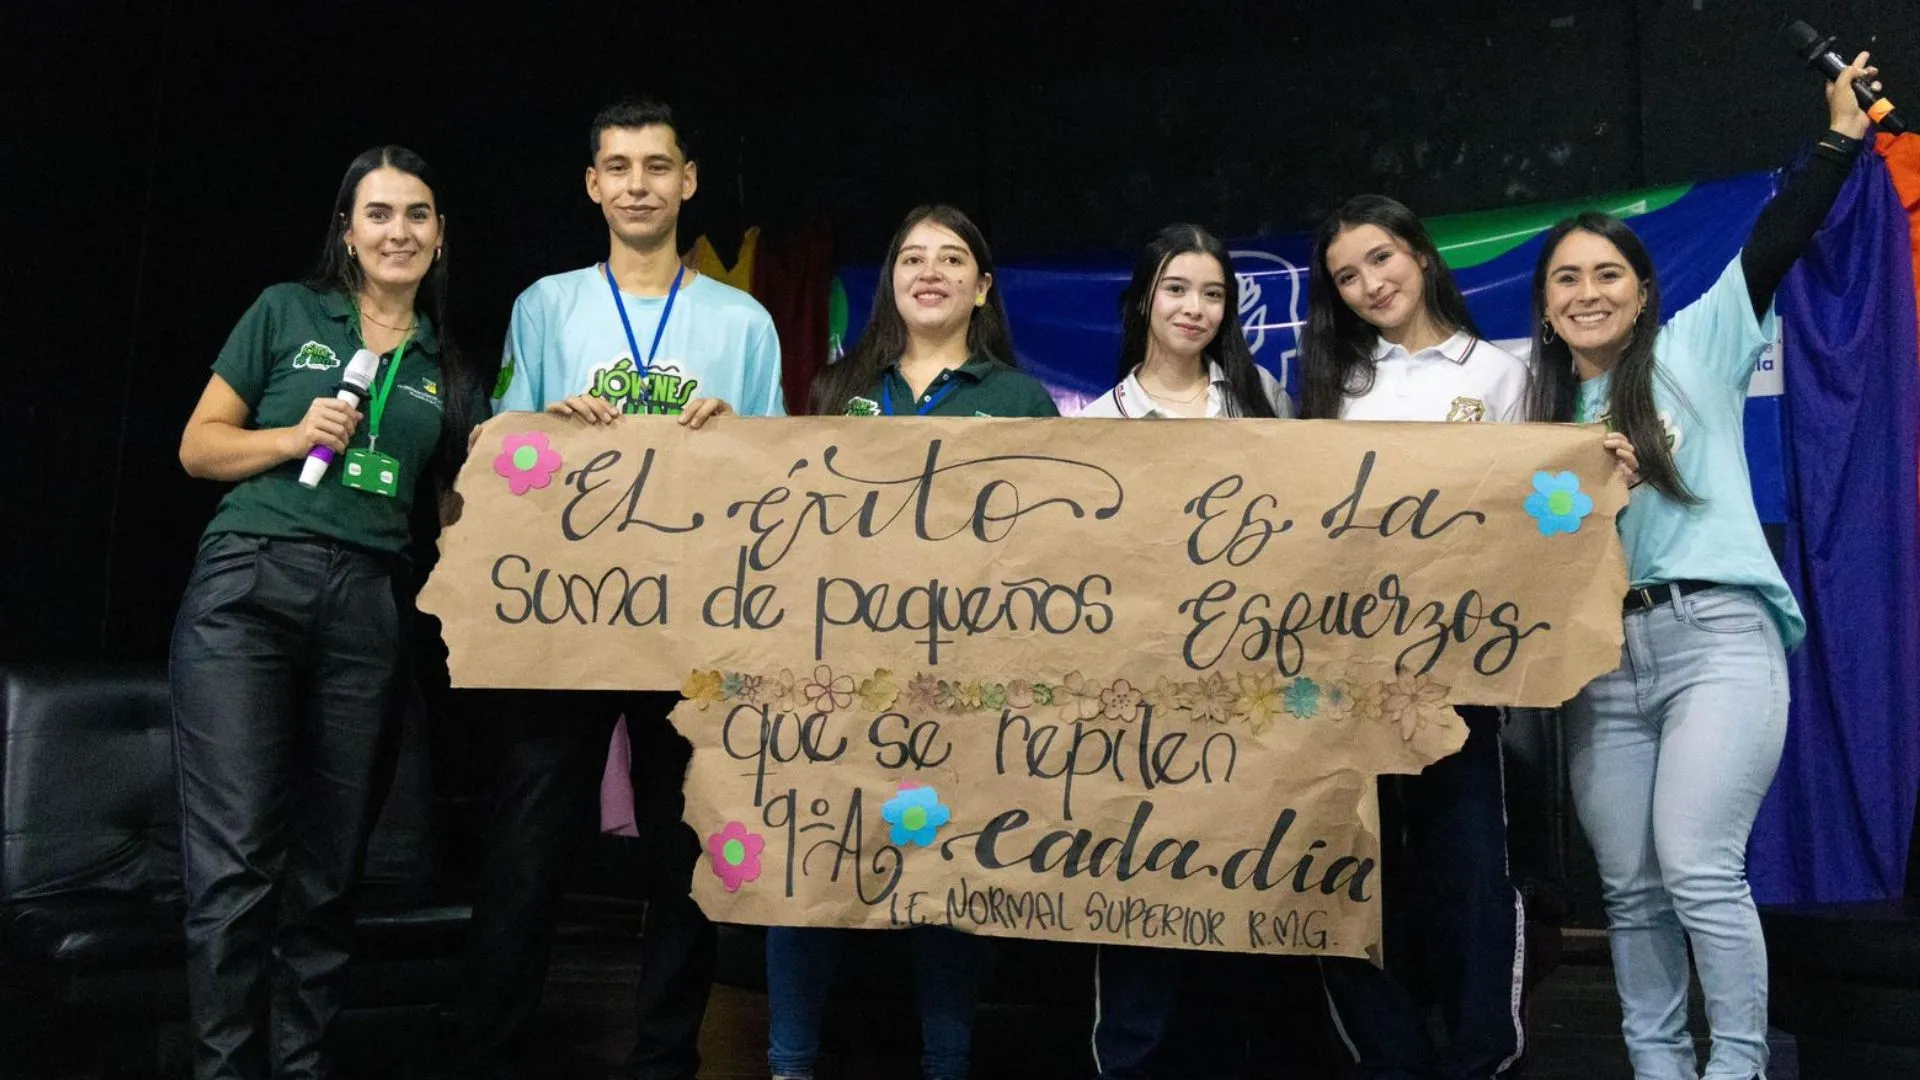 EL éxito Es La
suma de pequeños Esfuerzos
que se repiten
9°A cada día
I.E. NORMAL SUPERIOR R.M.G.
JÓVENES